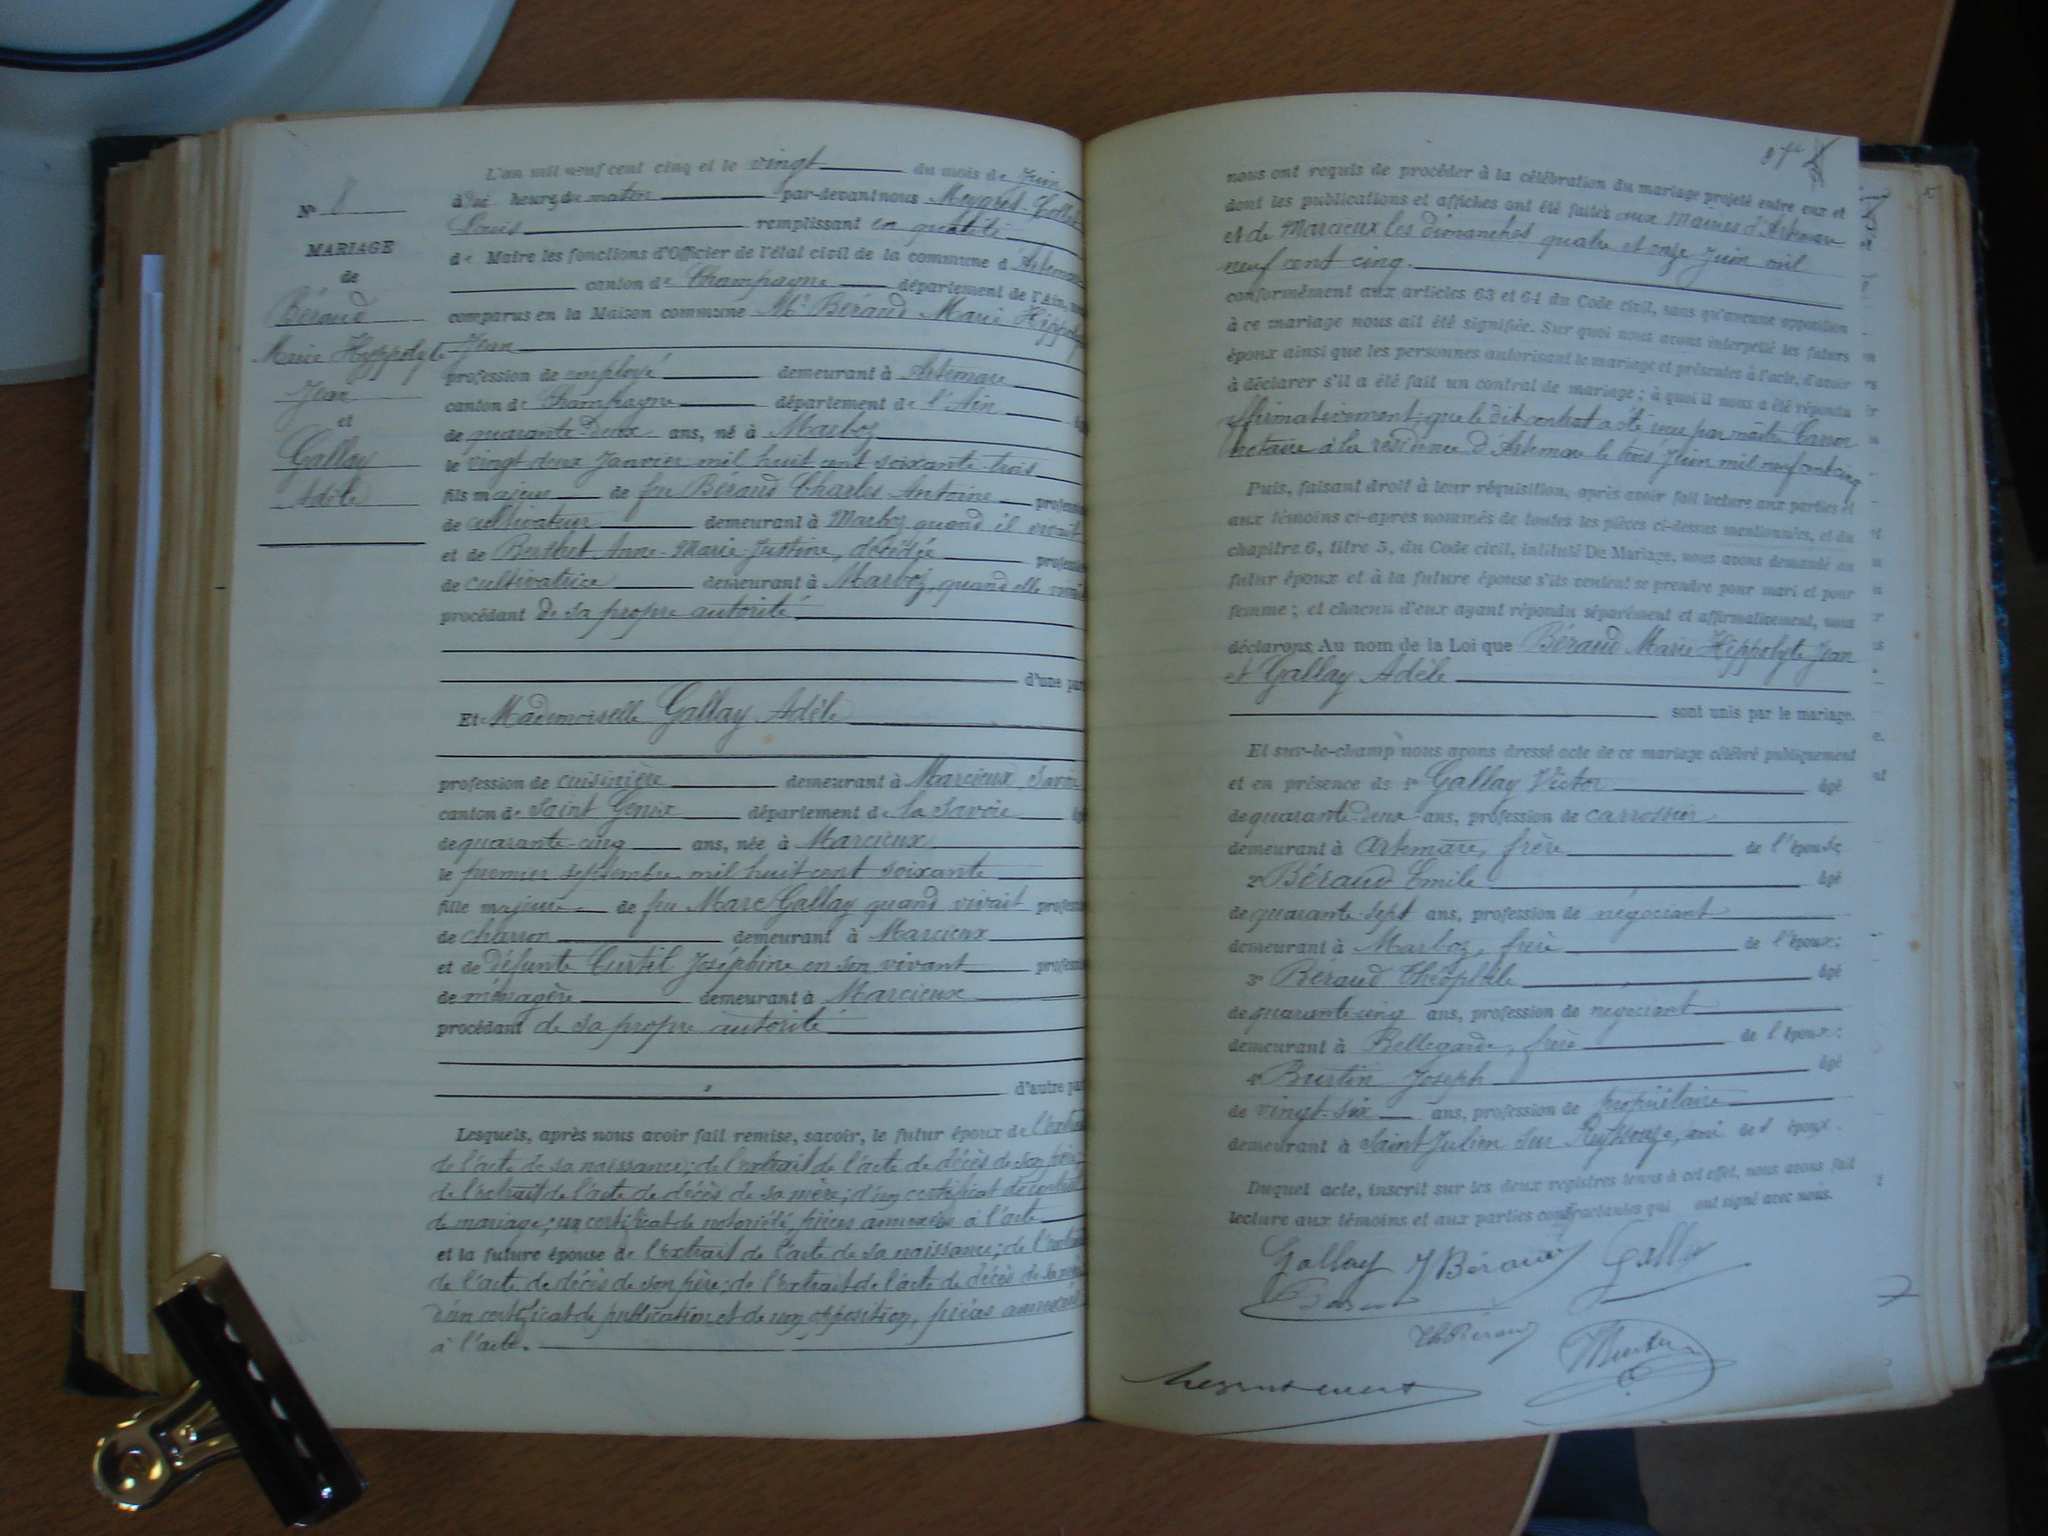 N° 8
MARIAGE
de
Béraud
Marie Hyppolyte
Jean
et
Gallay
Adèle
L'an mil neuf cent cinq et le vingt du mois de Juin
heures du matin par-devant nous
Louis remplissant en qualité
de Maire les fonctions d'Officier de l'état civil de la commune d'Artemare
canton de Champagne département de l'Ain,
comparus en la Maison commune Mr Béraud Marie Hippolyte
Jean
profession de employé demeurant à Artemare
canton de Champagne département de l'Ain
de quarante-deux ans, né à Marboz
le vingt deux Janvier mil huit cent soixante trois
fils majeur de feu Béraud Charles Antoine profession
de cultivateur demeurant à Marboz quand il vivait
et de Berthet Anne-Marie Justine, décédée profession
de cultivatrice demeurant à Marboz, quand elle vivait
procédant de sa propre autorité
d'une part
Et Mademoiselle Gallay Adèle
profession de cuisinière demeurant à Marcieux Savoie
canton de Saint Genix département de la Savoie
de quarante-cinq ans, née à Marcieux
le premier septembre mil huit cent soixante
fille majeure de feu Marc Gallay quand vivait profession
de charron demeurant à Marcieux
et de défunte Curtil Joséphine en son vivant profession
de ménagère demeurant à Marcieux
procédant de sa propre autorité
d'autre part
Lesquels, après nous avoir fait remise, savoir, le futur époux de l'extrait
de l'acte de sa naissance; de l'extrait de l'acte de décès de son père;
de l'extrait de l'acte de décès de sa mère; d'un certificat de contrat
de mariage; un certificat de notoriété, pièces annexées à l'acte
et la future épouse de l'extrait de l'acte de sa naissance; de l'extrait
de l'acte de décès de son père; de l'extrait de l'acte de décès de sa mère
d'un certificat de publication et de non opposition, pièces annexées
à l'acte.
nous ont requis de procéder à la célébration du mariage projeté entre eux et
dont les publications et affiches ont été faites aux Mairies d'Artemare
et de Marcieux les dimanches quatre et onze Juin mil
neuf cent cinq.
conformément aux articles 63 et 64 du Code civil, sans qu'aucune opposition
à ce mariage nous ait été signifiée. Sur quoi nous avons interpellé les futurs
époux ainsi que les personnes autorisant le mariage et présentes à l'acte, d'avoir
à déclarer s'il a été fait un contrat de mariage; à quoi il nous a été répondu
affirmativement; que le dit contrat a été reçu par maître Carron
notaire à la résidence d'Artemare le trois Juin mil neuf cent cinq
Puis, faisant droit à leur réquisition, après avoir fait lecture aux parties et
aux témoins ci-après nommés de toutes les pièces ci-dessus mentionnées, et du
chapitre 6, titre 5, du Code civil, intitulé Du Mariage, nous avons demandé au
futur époux et à la future épouse s'ils veulent se prendre pour mari et pour
femme; et chacun d'eux ayant répondu séparément et affirmativement, nous
déclarons Au nom de la Loi que Béraud Marie Hippolyte Jean
et Gallay Adèle
sont unis par le mariage.
Et sur-le-champ nous avons dressé acte de ce mariage célébré publiquement
et en présence de 1° Gallay Victor âgé
de quarante-deux ans, profession de carrossier
demeurant à Artemare, frère de l'épouse
2° Béraud Emile âgé
de quarante-sept ans, profession de négociant
demeurant à Marboz, frère de l'époux;
3° Béraud Théophile âgé
de quarante-cinq ans, profession de négociant
demeurant à Bellegarde, frère de l'époux;
4° Burtin Joseph âgé
de vingt-six ans, profession de propriétaire
demeurant à Saint Julien sur Reyssouze, ami de l'époux.
Duquel acte, inscrit sur les deux registres tenus à cet effet, nous avons fait
lecture aux témoins et aux parties contractantes qui ont signé avec nous.
Gallay J Béraud Gallay
Th Béraud
Burtin